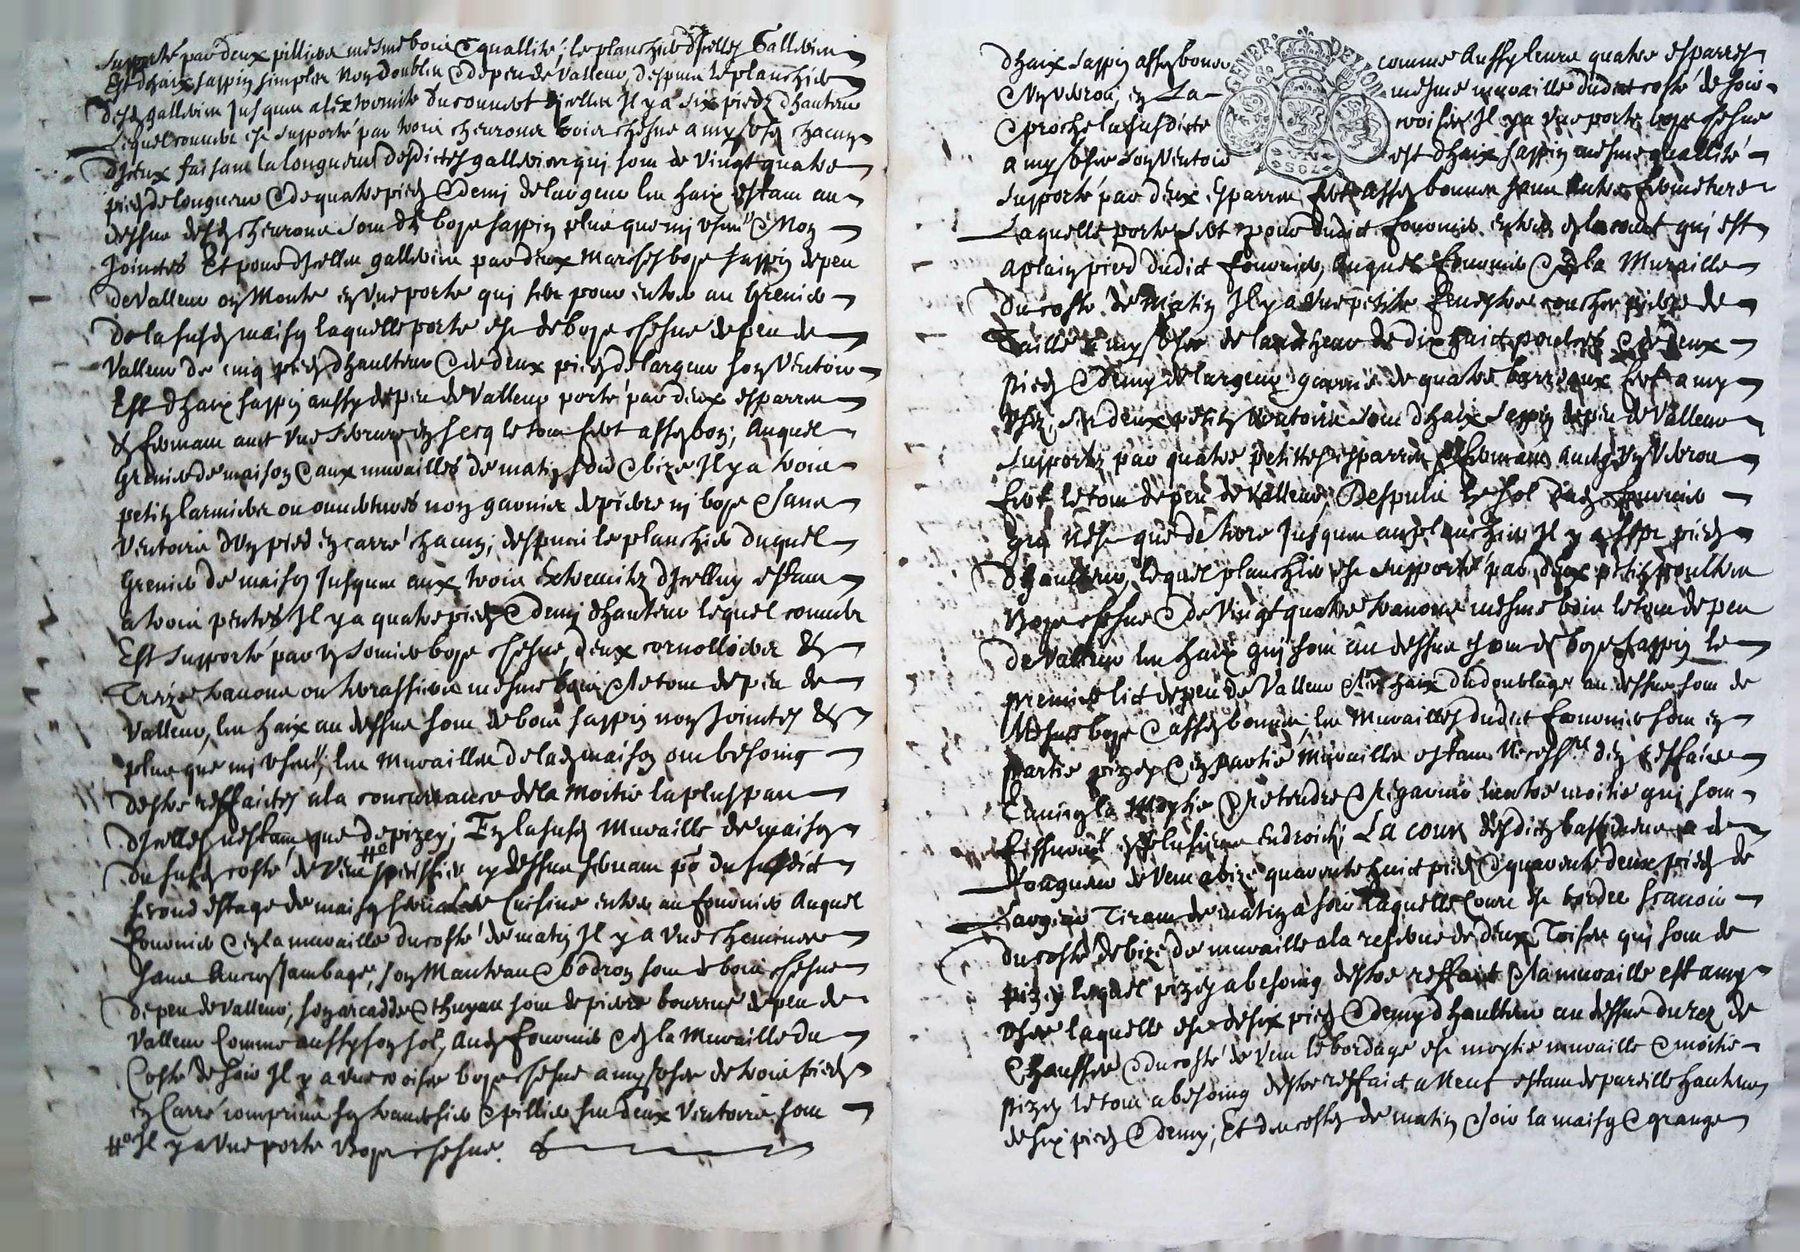 supporté par deux pilliers mesme bois & quallité; le planchié d'jcelles Galleries
Est d'haix sappin simples non doubles & de peu de valleur, despuis le planchié
desd galleries jusques a l'extremité du couvert d'jcelles Il y a six pieds d'hauteur
Lequel couvert est supporté par trois chevrons bois chesne a my usés chacun
d'jceux faisant la longueur desdictes galleries qui sont de vingt quatre
pieds de longueur & de quatre pieds & demi de largeur les haix estant au
dessus desd chevrons sont de boys sappin plus que my usés & non
Jointes Et pour d'jcelles galleries par deux marches boys sappin de peu
de Valleur on Monte en une porte qui sert pour entrer au Grenier
de la susd maison laquelle porte est de boys chesne de peu de
Valleur de cinq pieds d'haulteur & de deux pieds de largeur son Ventoir
Est d'haix sappin aussy de peu de Valleur porté par deux esparres
& fermant avec une serrure en serq le tout fert assés bon; Auquel
Grenier de maison & aux murailles de matin soir & bize Il y a trois
petits larmiers ou ouvertures non garnies de pierre ni boys & sans
Ventoirs d'un pied en carré chacun; despuis le planchié duquel
Grenier de maison jusques aux trois Extremités d'jcelluy estant
a trois pentes Il y a quatre pieds & demi d'hauteur lequel couvert
Est supporté par un somier boys chesne, deux cornolliers &
Treize travons ou terrassiers mesme bois & le tout de peu de
Valleur, les haix au dessus sont de bois sappin non Jointes &
plus que mi usés, les murailles de lad maison ont besoing
destre reffaictes a la concurrance de la moitié la pluspart
d'jcelles n'estant que de pizey; En la susd muraille de maison
du susd costé de Vent specifiée cy dessus servant po du susdict
second estage de maison Cuisine entrer au fournier Auquel
fournier & en la muraille du costé de matin Il y a une cheminée
sans Aucuns Jambages, son Manteau & bodron sont de bois chesne
de peu de valleur, son arcadde & thuyau sont de pierre bourrue de peu de
Valleur Comme aussy son sol, Aud fournier & en la Muraille du
Costé de soir Il y a une croisée boys chesne a my usée de trois pieds
en Carré comprins son traversier & pillier ses deux Ventoirs sont
# Il y a une porte Boys chesne.
d'haix sappin assés bons comme Aussy leurs quatre esparres
& Verrou, en La mesme muraille dudict costé de soir
& proche la susdicte croisée Il y a une porte boys chesne
a my usée son Ventoir est d'haix sappin mesme quallité
supporté par deux Esparres fert assés bonnes sans Autre fermeture
Laquelle porte sert pour dudict fournier entrer en la court qui est
a plain pied dudict fournier, Auquel fournier & en la Muraille
du costé de Matin Il y a une petite fenestre couchée pierre de
Taille a my usée de la haulteur de dix huict poulces & de deux
pieds & demy de largeur garnie de quatre barreaux fert a my
usés, ses deux petits Ventoirs sont d'haix sappin de peu de Valleur
supportés par quatre petittes esparres & fermant avec un Verrou
fert le tout de peu de Valleur, Despuis le sol dud fournier
qui n'est que de terre Jusques au planchié Il y a sept pieds
d'haulteur, lequel planchié est supporté par deux petits poultres
Boys chesne & de Vingt quatre travons mesme bois le tout de peu
de Valleur les haix qui sont au dessus sont de boys sappin le
premier lict de peu de Valleur & les haix du doublage au dessus sont de
Mesme boys & assés bonnes, les Murailles dudict fournier sont en
partie pizey & en partie Muraille estant Necessre d'en reffaire
Environ la Moytié & retendre & regarnir l'autre moitié qui sont
fissurés en plusieurs Endroicts, La court desdicts bastiments a de
Longueur de Vent a bize quarante huict pieds & quarante deux pieds de
Largeur Tirant de matin a soir laquelle Court est bordée scavoir
du costé de bize de muraille a la reserve de deux Toises qui sont de
pizey lequel pizey a besoing destre reffaict & la muraille est a my
usée laquelle est de six pieds & demy d'haulteur au dessus du rez de
Chaussée & du costé de Vent le bordage est moytié muraille & moitié
pizey le tout a besoing destre reffaict a Neuf estant de pareille hauteur
de six pieds & demy; Et du costés de matin & soir la maison & grange
GENER. DE LYON